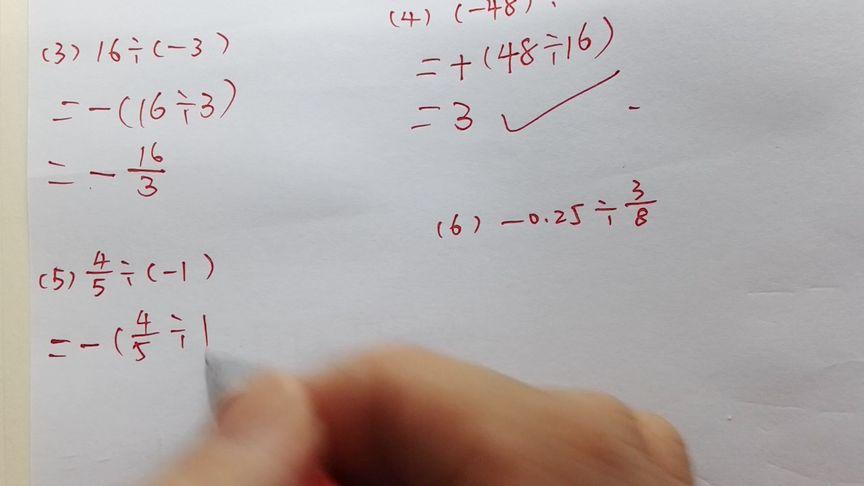 (3) 16÷(-3)
=-(16÷3)
=-16/3
(4) (-48)
=+(48÷16)
=3 ✓
(5) 4/5÷(-1)
=-(4/5÷1
(6) -0.25÷3/8